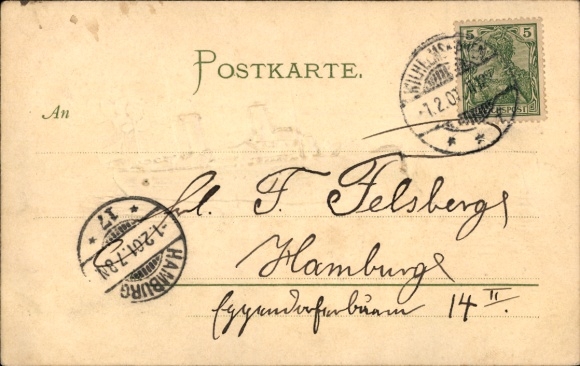 5 5
POSTKARTE.
WILHELMSHAVEN
-1.2.01
REICHSPOST
An
Frl. F. Felsberg
Hamburg
Eppendorferbaum 14 II.
* 17 *
-1.2.01.7-8N
HAMBURG